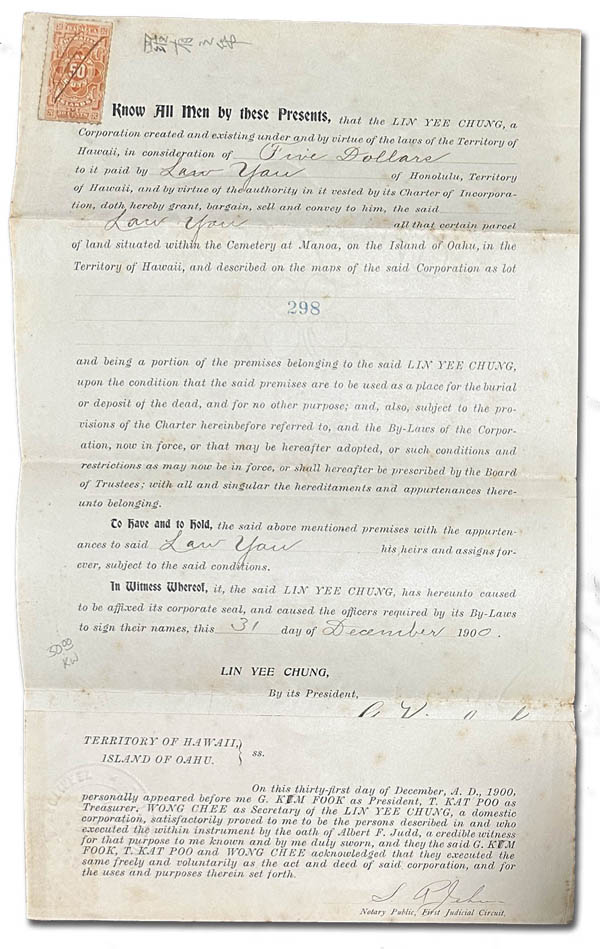 50
Know All Men by these Presents, that the LIN YEE CHUNG, a
Corporation created and existing under and by virtue of the laws of the Territory of
Hawaii, in consideration of Five Dollars
to it paid by Law Yau of Honolulu, Territory
of Hawaii, and by virtue of the authority in it vested by its Charter of Incorpora-
tion, doth hereby grant, bargain, sell and convey to him, the said
Law Yau all that certain parcel
of land situated within the Cemetery at Manoa, on the Island of Oahu, in the
Territory of Hawaii, and described on the maps of the said Corporation as lot
298
and being a portion of the premises belonging to the said LIN YEE CHUNG,
upon the condition that the said premises are to be used as a place for the burial
or deposit of the dead, and for no other purpose; and, also, subject to the pro-
visions of the Charter hereinbefore referred to, and the By-Laws of the Corpor-
ation, now in force, or that may be hereafter adopted, or such conditions and
restrictions as may now be in force, or shall hereafter be prescribed by the Board
of Trustees; with all and singular the hereditaments and appurtenances there-
unto belonging.
To Have and to Hold, the said above mentioned premises with the appurten-
ances to said Law Yau his heirs and assigns for-
ever, subject to the said conditions.
In Witness Whereof, it, the said LIN YEE CHUNG, has hereunto caused
to be affixed its corporate seal, and caused the officers required by its By-Laws
to sign their names, this 31 day of December 1900.
50.00
KW
LIN YEE CHUNG,
By its President,
TERRITORY OF HAWAII,
ISLAND OF OAHU. } ss.
On this thirty-first day of December, A. D., 1900,
personally appeared before me G. KIM FOOK as President, T. KAT POO as
Treasurer, WONG CHEE as Secretary of the LIN YEE CHUNG, a domestic
corporation, satisfactorily proved to me to be the persons described in and who
executed the within instrument by the oath of Albert F. Judd, a credible witness
for that purpose to me known and by me duly sworn, and they the said G. KIM
FOOK, T. KAT POO and WONG CHEE acknowledged that they executed the
same freely and voluntarily as the act and deed of said corporation, and for
the uses and purposes therein set forth.
Notary Public, First Judicial Circuit.